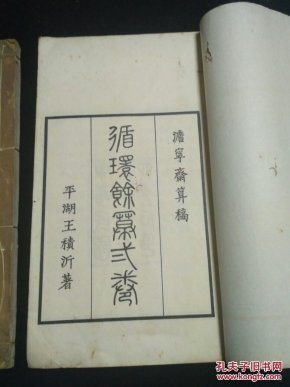 澹寧齋算稿
循環餘冪弍卷
平湖王積沂著
孔夫子旧书网